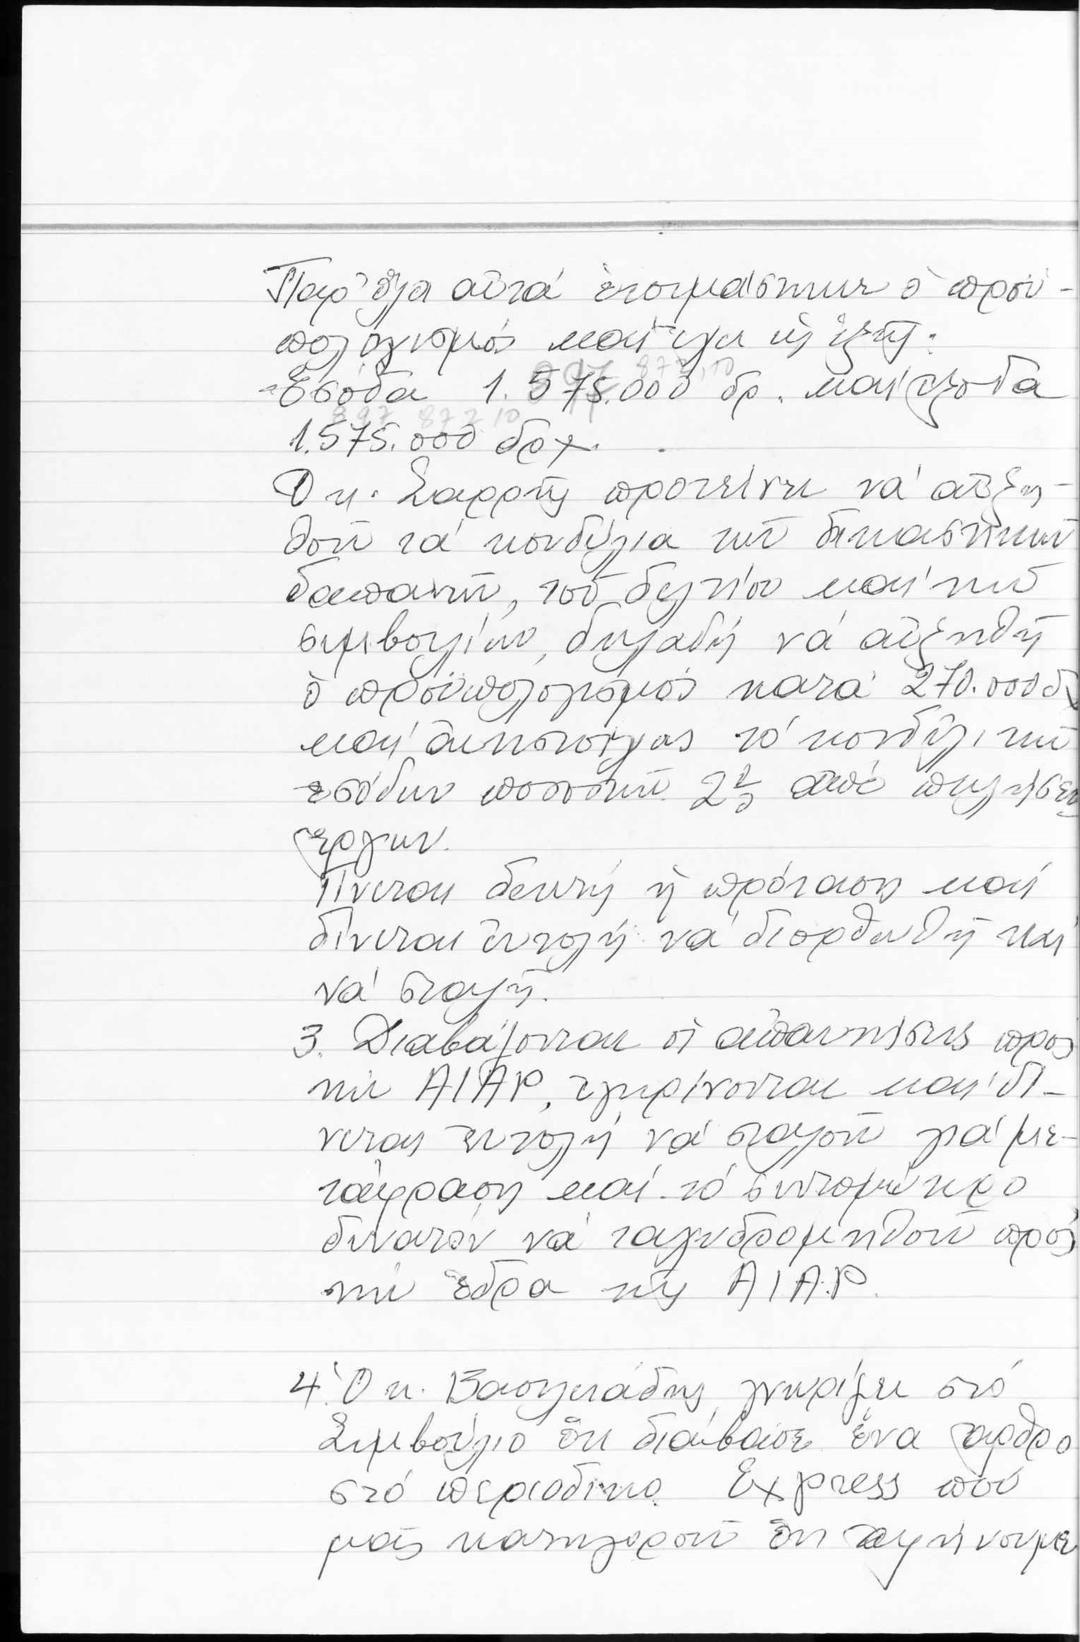 Παρ' ὅλα αὐτά ἑτοιμάστηκε ὁ προϋ-
πολογισμός καί ἔχει ὡς ἑξῆς:
Ἔσοδα 1.575.000 δρ. καί ἔξοδα
1.575.000 δρχ.
Ὁ κ. Σαρρῆς προτείνει νά αὐξη-
θοῦν τά κονδύλια τῶν δικαστικῶν
δαπανῶν, τοῦ δελτίου καί τῶν
συμβουλίων, δηλαδή νά αὐξηθῆ
ὁ προϋπολογισμός κατά 270.000 δρ
καί ἀντιστοίχως τό κονδύλι τῶν
ἐσόδων ποσοστῶν 2% ἀπό πωλήσεις
ἔργων.
Γίνεται δεκτή ἡ πρόταση καί
δίνεται ἐντολή νά διορθωθῆ καί
νά σταλῆ.
3. Διαβάζονται οἱ ἀπαντήσεις πρός
τήν AIAP, ἐγκρίνονται καί δί-
νεται ἐντολή νά σταλοῦν γιά με-
τάφραση καί τό συντομώτερο
δυνατόν νά ταχυδρομηθοῦν πρός
τήν ἕδρα τῆς A.I.A.P.
4. Ὁ κ. Βασιλειάδης γνωρίζει στό
Συμβούλιο ὅτι διάβασε ἕνα ἄρθρο
στό περιοδικό Express πού
μᾶς κατηγοροῦν ὅτι ἀφήνουμε